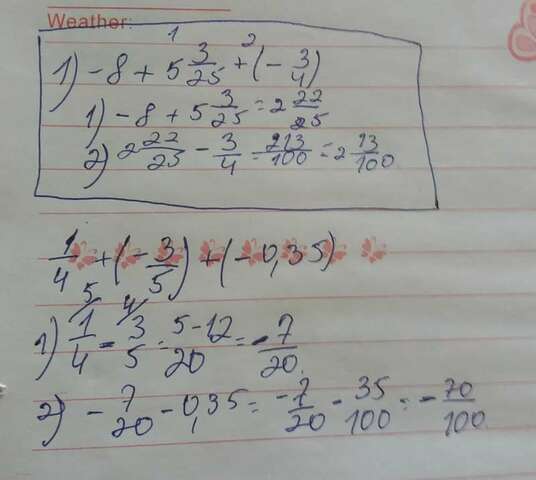 Weather:
1) -8 + 5 3/25 + (- 3/4)
1) -8 + 5 3/25 = 2 22/25
2) 2 22/25 - 3/4 = 213/100 = 2 13/100
1/4 + (- 3/5) + (- 0,35)
1) 1/4 - 3/5 = 5-12/20 = - 7/20.
2) - 7/20 - 0,35 = - 7/20 - 35/100 = - 70/100